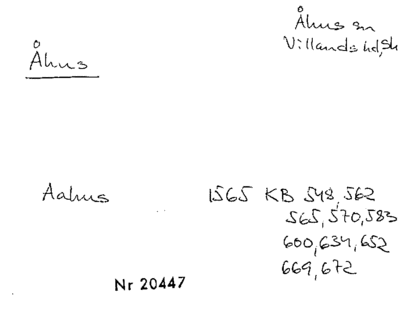 Åhus
Åhus sn
Villands hd, Sk
Aahus 1565 KB 548, 562
565, 570, 583
600, 634, 652
669, 672
Nr 20447